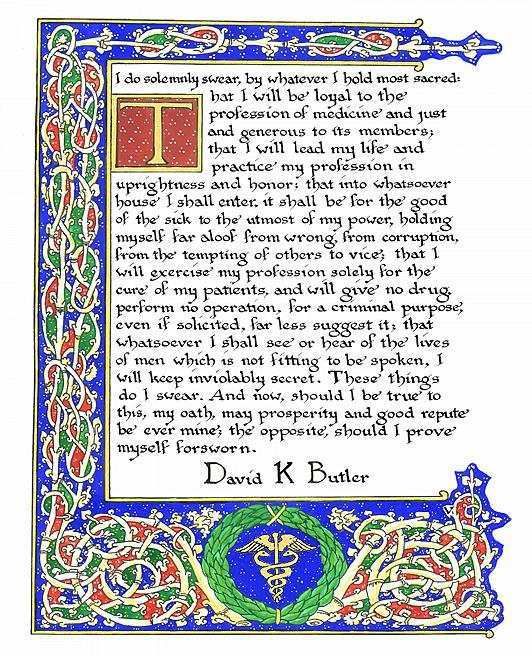 I do solemnly swear, by whatever I hold most sacred:
That I will be loyal to the
profession of medicine and just
and generous to its members;
that I will lead my life and
practice my profession in
uprightness and honor; that into whatsoever
house I shall enter, it shall be for the good
of the sick to the utmost of my power, holding
myself far aloof from wrong, from corruption,
from the tempting of others to vice; that I
will exercise my profession solely for the
cure of my patients, and will give no drug,
perform no operation, for a criminal purpose,
even if solicited, far less suggest it; that
whatsoever I shall see or hear of the lives
of men which is not fitting to be spoken, I
will keep inviolably secret. These things
do I swear. And now, should I be true to
this, my oath, may prosperity and good repute
be ever mine; the opposite, should I prove
myself forsworn.
David K Butler